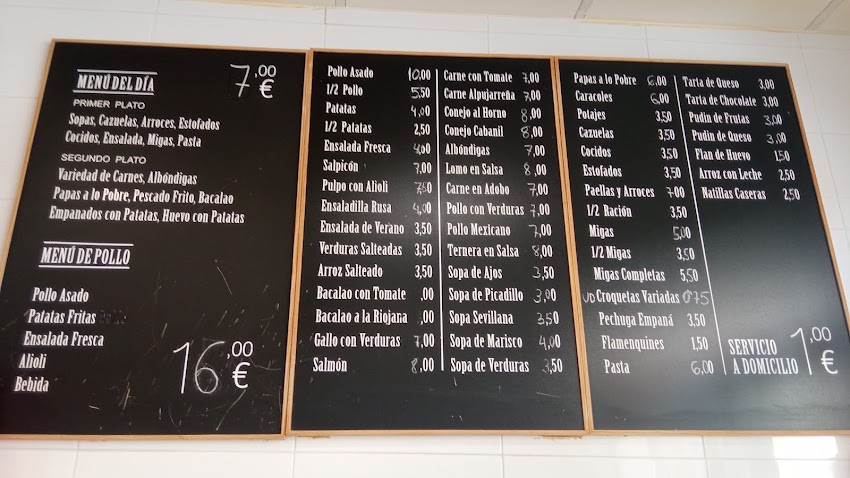 MENÚ DEL DÍA 7,00 €
PRIMER PLATO
Sopas, Cazuelas, Arroces, Estofados
Cocidos, Ensalada, Migas, Pasta
SEGUNDO PLATO
Variedad de Carnes, Albóndigas
Papas a lo Pobre, Pescado Frito, Bacalao
Empanados con Patatas, Huevo con Patatas
MENÚ DE POLLO
Pollo Asado
Patatas Fritas
Ensalada Fresca
Alioli
Bebida
16,00 €
Pollo Asado 10,00
1/2 Pollo 5,50
Patatas 4,00
1/2 Patatas 2,50
Ensalada Fresca 4,00
Salpicón 7,00
Pulpo con Alioli 7,50
Ensaladilla Rusa 4,00
Ensalada de Verano 3,50
Verduras Salteadas 3,50
Arroz Salteado 3,50
Bacalao con Tomate ,00
Bacalao a la Riojana ,00
Gallo con Verduras 7,00
Salmón 8,00
Carne con Tomate 7,00
Carne Alpujarreña 7,00
Conejo al Horno 8,00
Conejo Cabanil 8,00
Albóndigas 7,00
Lomo en Salsa 8,00
Carne en Adobo 7,00
Pollo con Verduras 7,00
Pollo Mexicano 7,00
Ternera en Salsa 8,00
Sopa de Ajos 3,50
Sopa de Picadillo 3,00
Sopa Sevillana 3,50
Sopa de Marisco 4,00
Sopa de Verduras 3,50
Papas a lo Pobre 6,00
Caracoles 6,00
Potajes 3,50
Cazuelas 3,50
Cocidos 3,50
Estofados 3,50
Paellas y Arroces 7,00
1/2 Ración 3,50
Migas 5,00
1/2 Migas 3,50
Migas Completas 5,50
UD Croquetas Variadas 0'75
Pechuga Empaná 3,50
Flamenquines 1,50
Pasta 6,00
Tarta de Queso 3,00
Tarta de Chocolate 3,00
Pudin de Frutas 3,00
Pudin de Queso 3,00
Flan de Huevo 1,50
Arroz con Leche 2,50
Natillas Caseras 2,50
SERVICIO
A DOMICILIO 1,00 €